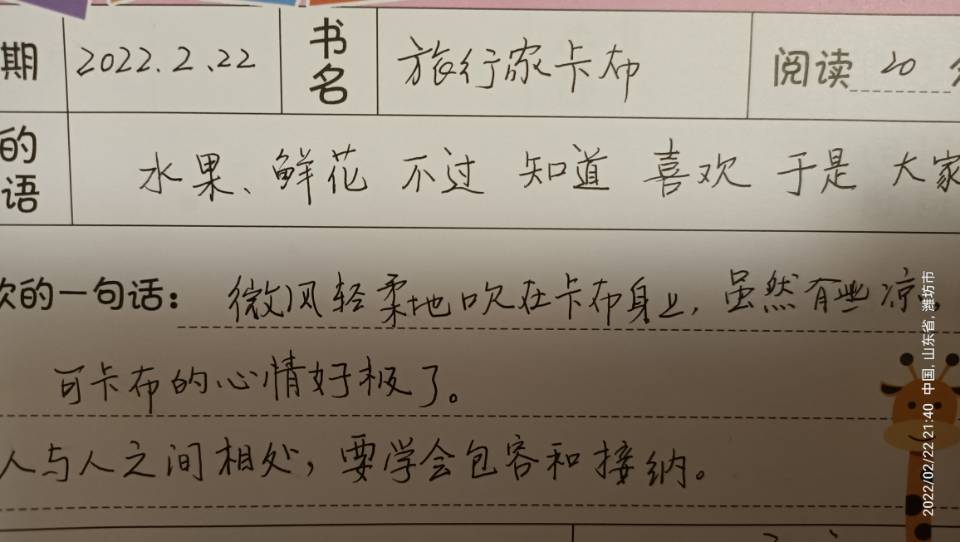 期 2022.2.22 书名 旅行家卡布 阅读 20
的语 水果、鲜花 不过 知道 喜欢 于是 大家
的一句话：微风轻柔地吹在卡布身上，虽然有些凉，
可卡布的心情好极了。
人与人之间相处，要学会包容和接纳。
2022/02/22 21:40 中国, 山东省, 潍坊市